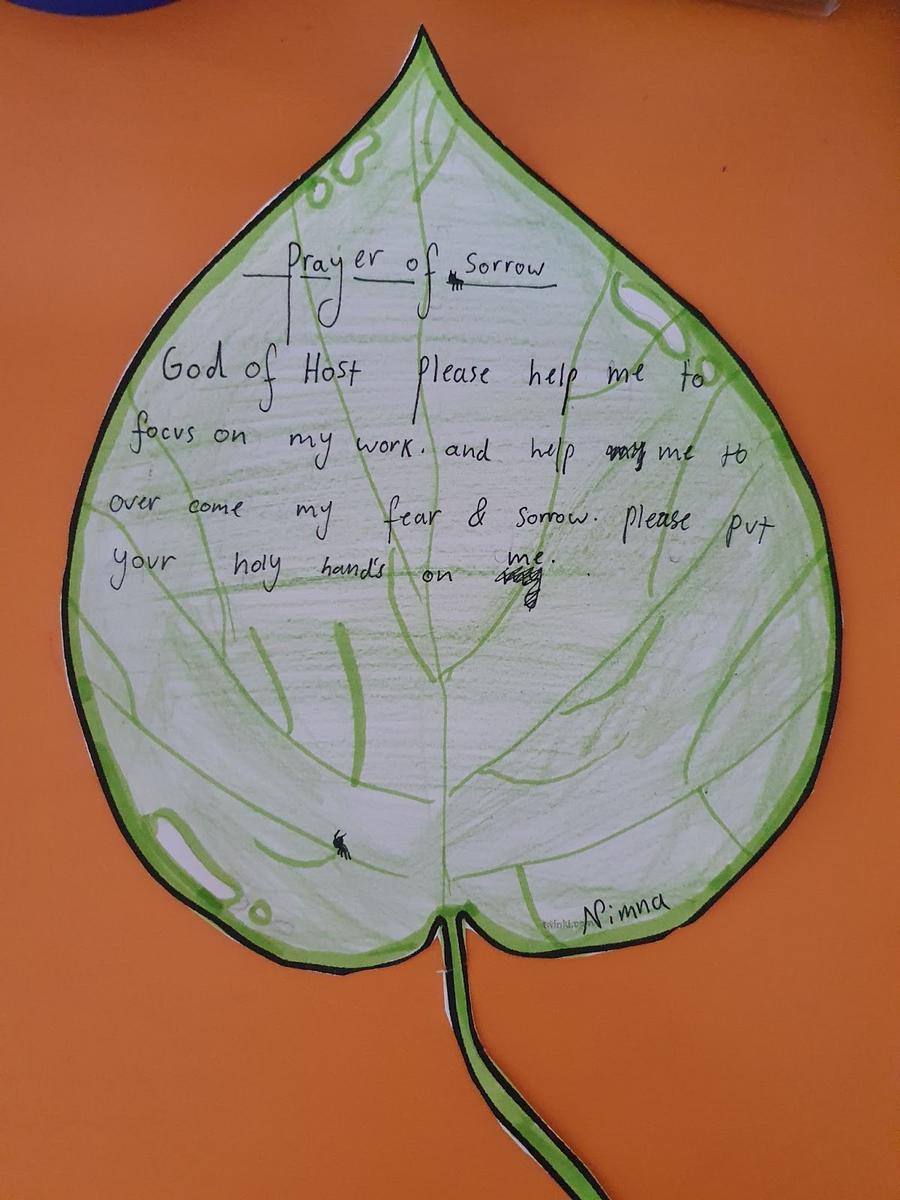 Prayer of Sorrow
God of Host please help me to
focus on my work. and help me to
over come my fear & sorrow. please put
your holy hand's on me.
Nimna